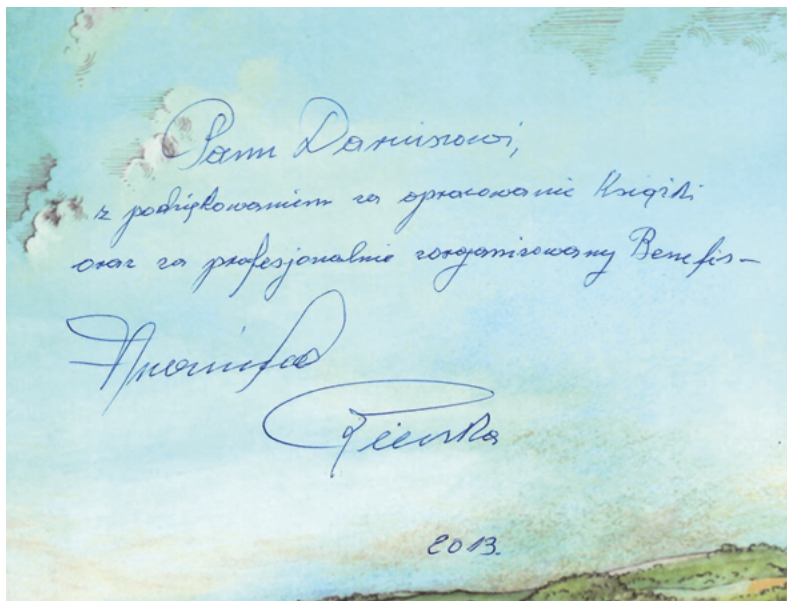 Panu Dariuszowi,
z podziękowaniem za opracowanie Książki
oraz za profesjonalnie zorganizowany Benefis –
2013.